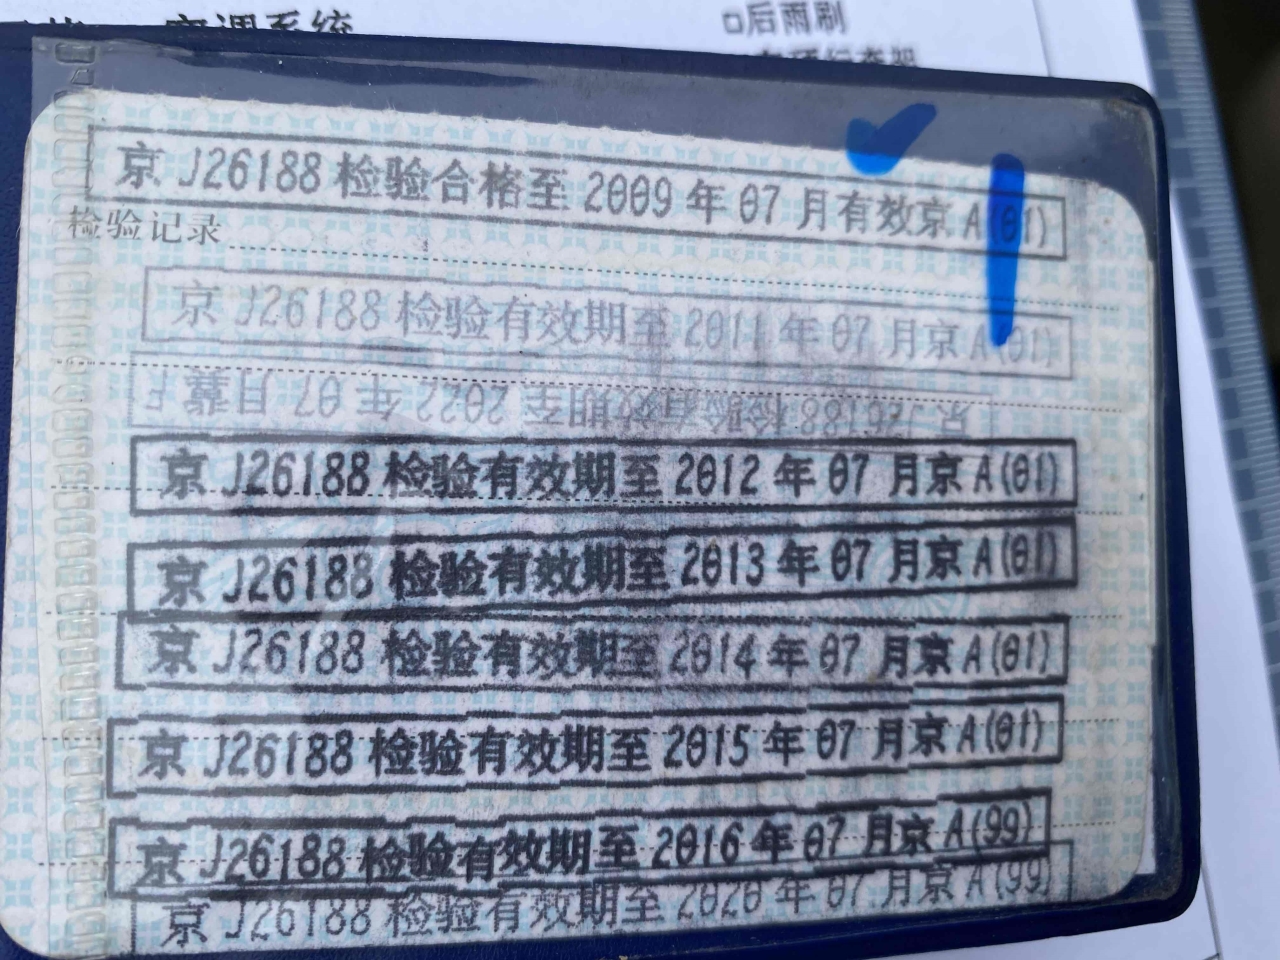 空调系统
口后雨刷
京 J26188 检验合格至 2009 年 07 月有效京 A(01)
检验记录
京 J26188 检验有效期至 2011 年 07 月京 A(01)
京 J26188 检验有效期至 2022 年 07 月冀 F
京 J26188 检验有效期至 2012 年 07 月京 A(01)
京 J26188 检验有效期至 2013 年 07 月京 A(01)
京 J26188 检验有效期至 2014 年 07 月京 A(01)
京 J26188 检验有效期至 2015 年 07 月京 A(01)
京 J26188 检验有效期至 2016 年 07 月京 A(99)
京 J26188 检验有效期至 2020 年 07 月京 A(99)